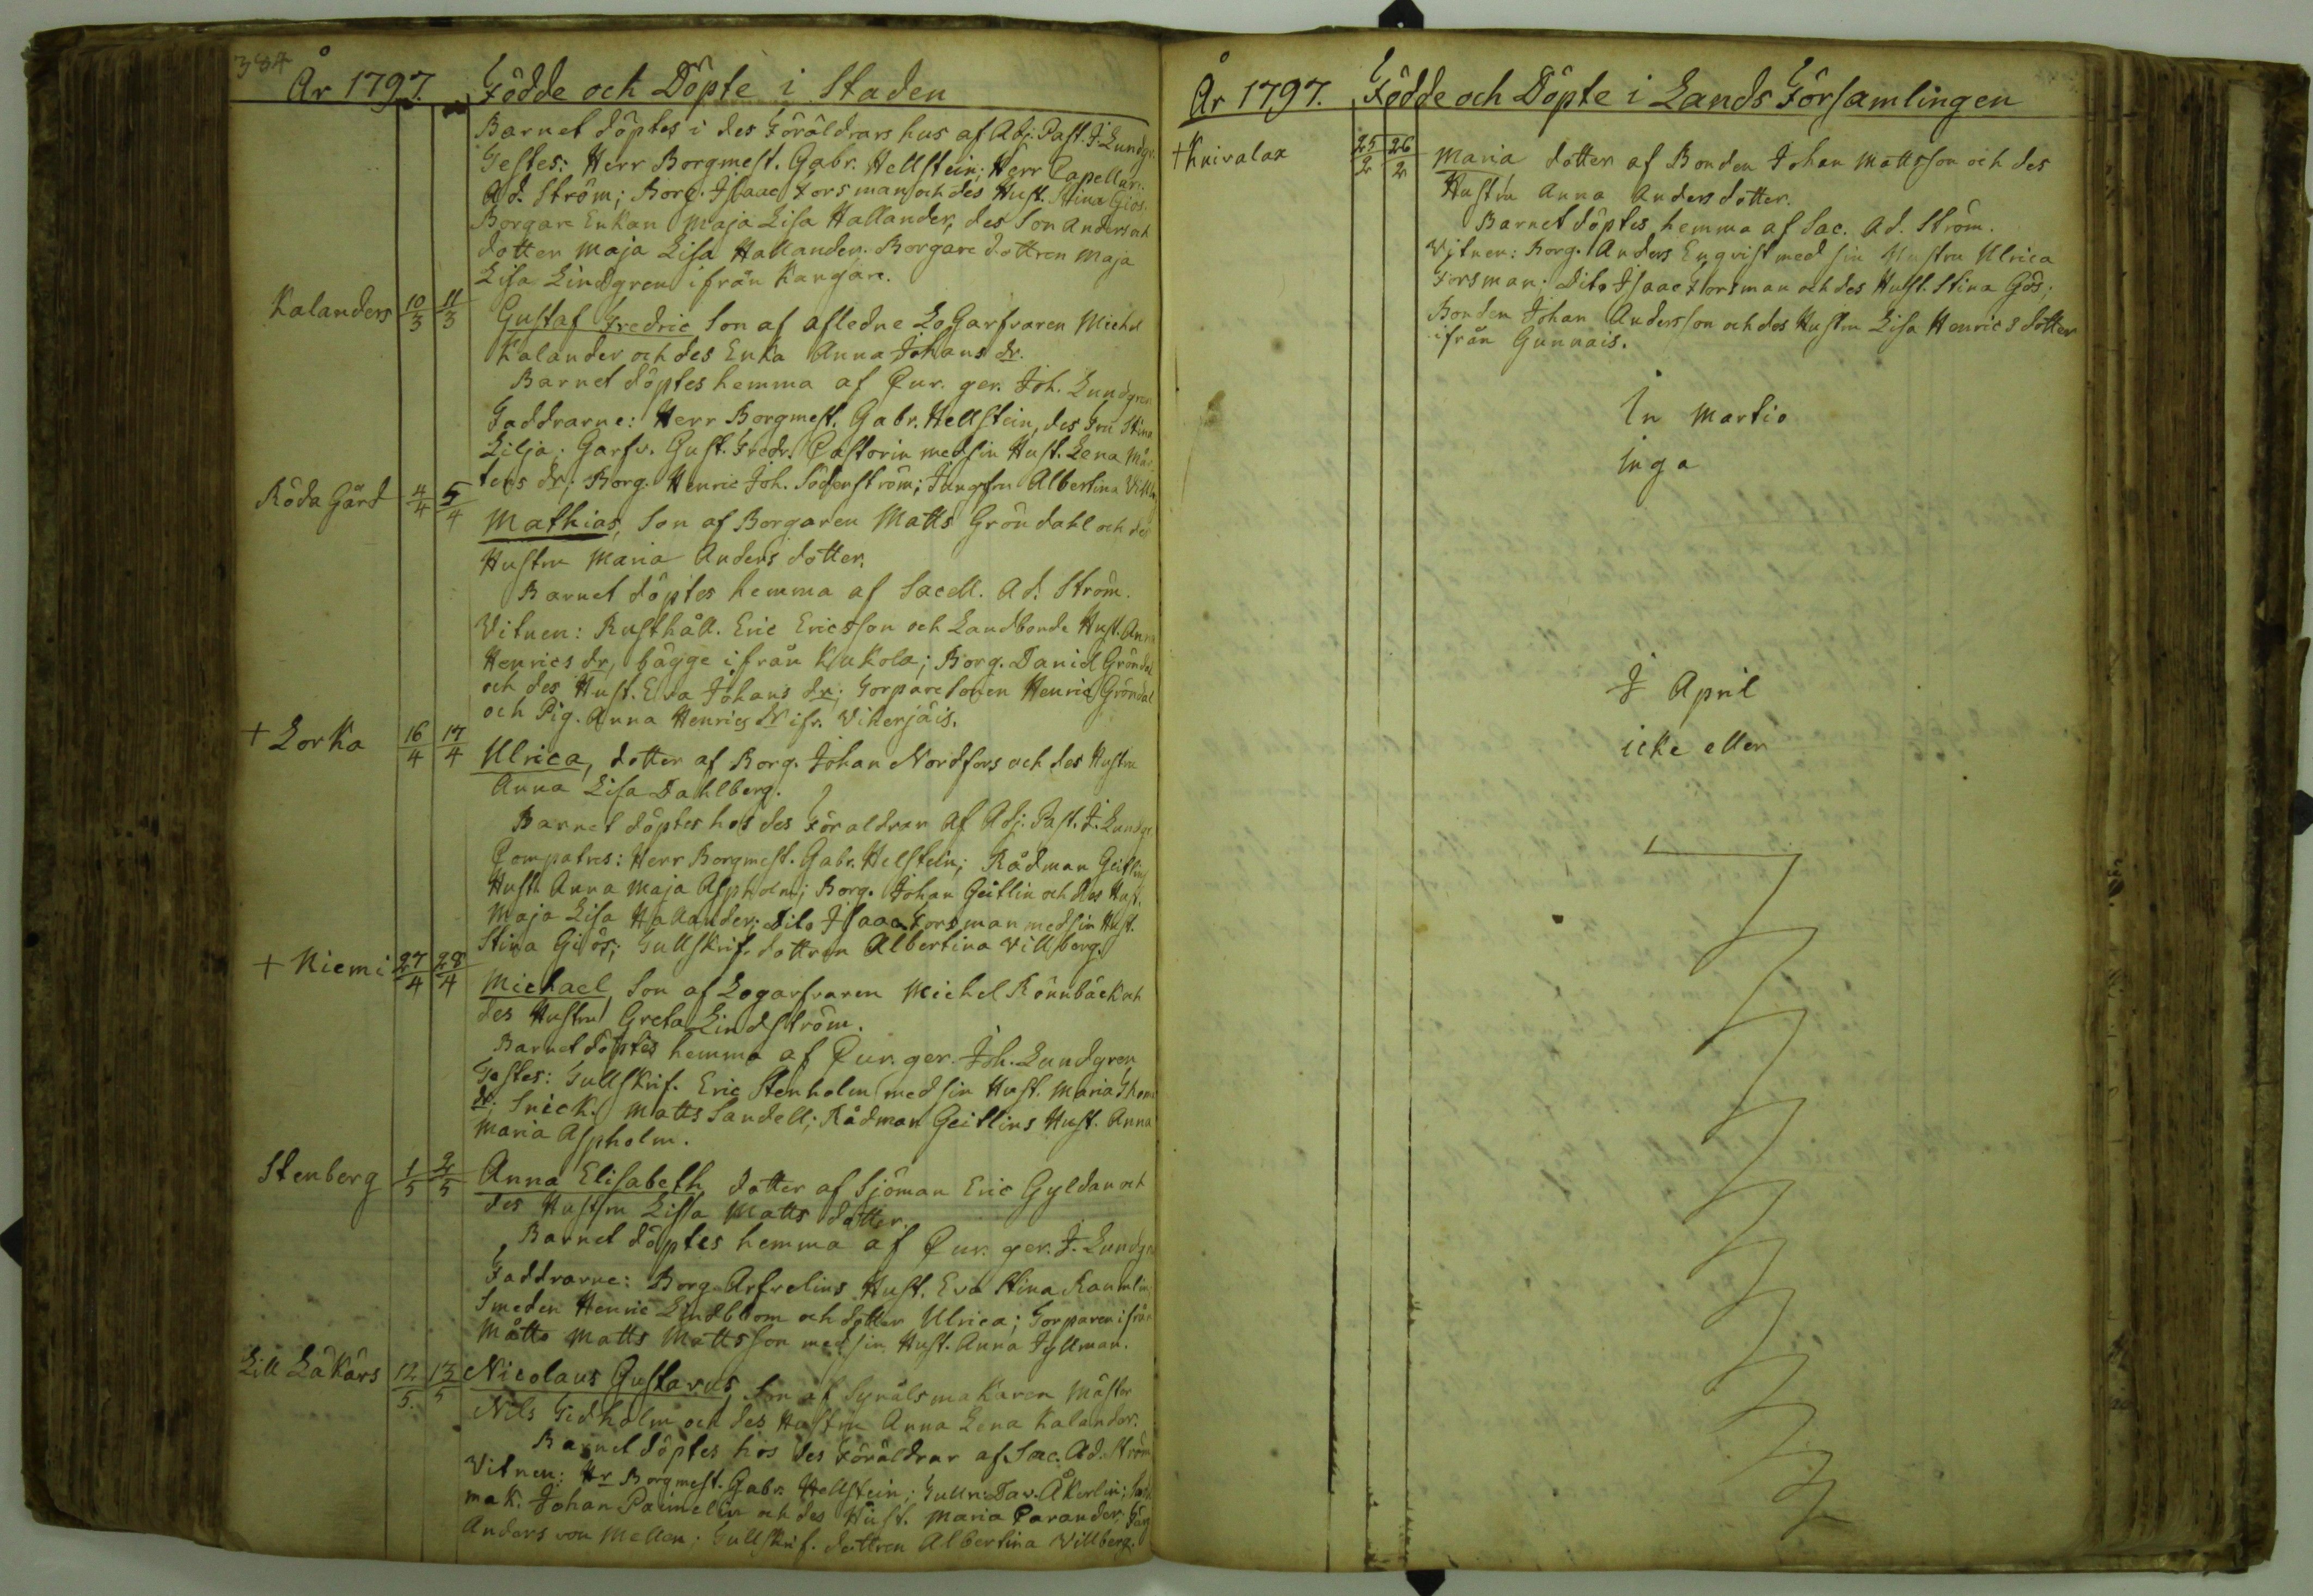 384
År 1797. Födde och Döpte i Staden
Barnet döptes i des Föräldrars hus af Adj. Past. J. Lundgr.
Testes: Herr Borgmest. Gabr. Hellstein; Herr Capellan.
Ad. Ström; Borg. Isaac Forsman och des Hust. Stina Giös.
Borgare Enkan Maja Lisa Hallander, des Son Anders och
dotter Maja Lisa Hallander. Borgare dottren Maja
Lisa Lindgren ifrån Kangare.
Kalanders 10/3 11/3 Gustaf Fredric Son af afledne LoGarfvaren Michel
Kalander och des Enka Anna Johans dr.
Barnet döptes hemma af Cur. ger. Joh. Lundgren
Faddrarne: Herr Borgmest. Gabr. Hellstein, des Fru Stina
Lilja; Garfv. Gust. Fredr. Castorin med sin Hust. Lena Mår
tens dr; Borg. Henric Joh. Söderström; Jungfru Albertina Villb
Röda Gård 4/4 5/4 Mathias, Son af Borgaren Matts Gröndahl och des
Hustru Maria Anders dotter.
Barnet döptes hemma af Sacell. Ad. Ström.
Vitnen: Rusthåll. Eric Ericsson och Landbonde Hust. Anna
Henrics dr, bägge ifrån Kukola; Borg. Daniel Gröndal
och des Hust. Eva Johans dr; Torpare sonen Henric Gröndal
och Pig. Anna Henrics dr ifr. Vikerjäis.
+ Lorka 16/4 17/4 Ulrica, dotter af Borg. Johan Nordfors och des Hustru
Anna Lisa Dahlberg.
Barnet döptes hos des Föraldrar af Adj. Past. J. Lundgr
Compatres: Herr Borgmest. Gabr. Helstein; Rådman Geitlins
Hust. Anna Maja Aspholm; Borg. Johan Geitlin och des Hust.
Maja Lisa Hallander; Dito Isaac Forsman med sin Hust.
Stina Giös; Tullskrif. dottren Albertina Villberg.
+ Niemi 27/4 28/4 Michael, Son af Logarfvaren Michel Rönnbäck och
des Hustru Greta Lindström.
Barnet döptes hemma af Cur. ger. Joh. Lundgren
Testes: Tullskrif. Eric Stenholm med sin Hust. Maria Thom
dr; Snick. Matts Sandell; Rådman Geitlins Hust. Anna
Maria Aspholm.
Stenberg 1/5 2/5 Anna Elisabeth dotter af Sjöman Eric Gyldan och
des Hustru Lisa Matts dotter.
Barnet döptes hemma af Cur. ger. J. Lundgr
Faddrarne: Borg. Arfvelins Hust. Eva Stina Raumlin;
Smeden Henric Lindblom och dotter Ulrica; Torparen ifrån
Måtto Matts Mattsson med sin Hust. Anna Tyllman.
Lill Låkärs 12/5 13/5 Nicolaus Gustavus, Son af Synålsmakaren Mäster
Nils Tidholm och des Hustru Anna Lena Kalander.
Barnet döptes hos des Föräldrar af Sac. Ad. Ström
Vitnen: Hr Borgmest. Gabr. Hellstein; Tulln: Dav. Åkerlin;
mak. Johan Paumelin och des Hust. Maria Parander;
Anders von Mellen. Tullskrif. dottren Albertina Villberg.
År 1797. Födde och Döpte i Lands Församlingen
+ Knivalax 25/2 26/2 Maria dotter af Bonden Johan Mattsson och des
Hustru Anna Anders dotter.
Barnet döptes hemma af Sac. Ad. Ström.
Vitnen: Borg. Anders Enqvist med sin Hustru Ulrica
Forsman; Dito Isaac Forsman och des Hust. Stina Giös;
Bonden Johan Andersson och des Hustru Lisa Henrics dotter
ifrån Gunnais.
In Martio
inga
I April
icke eller